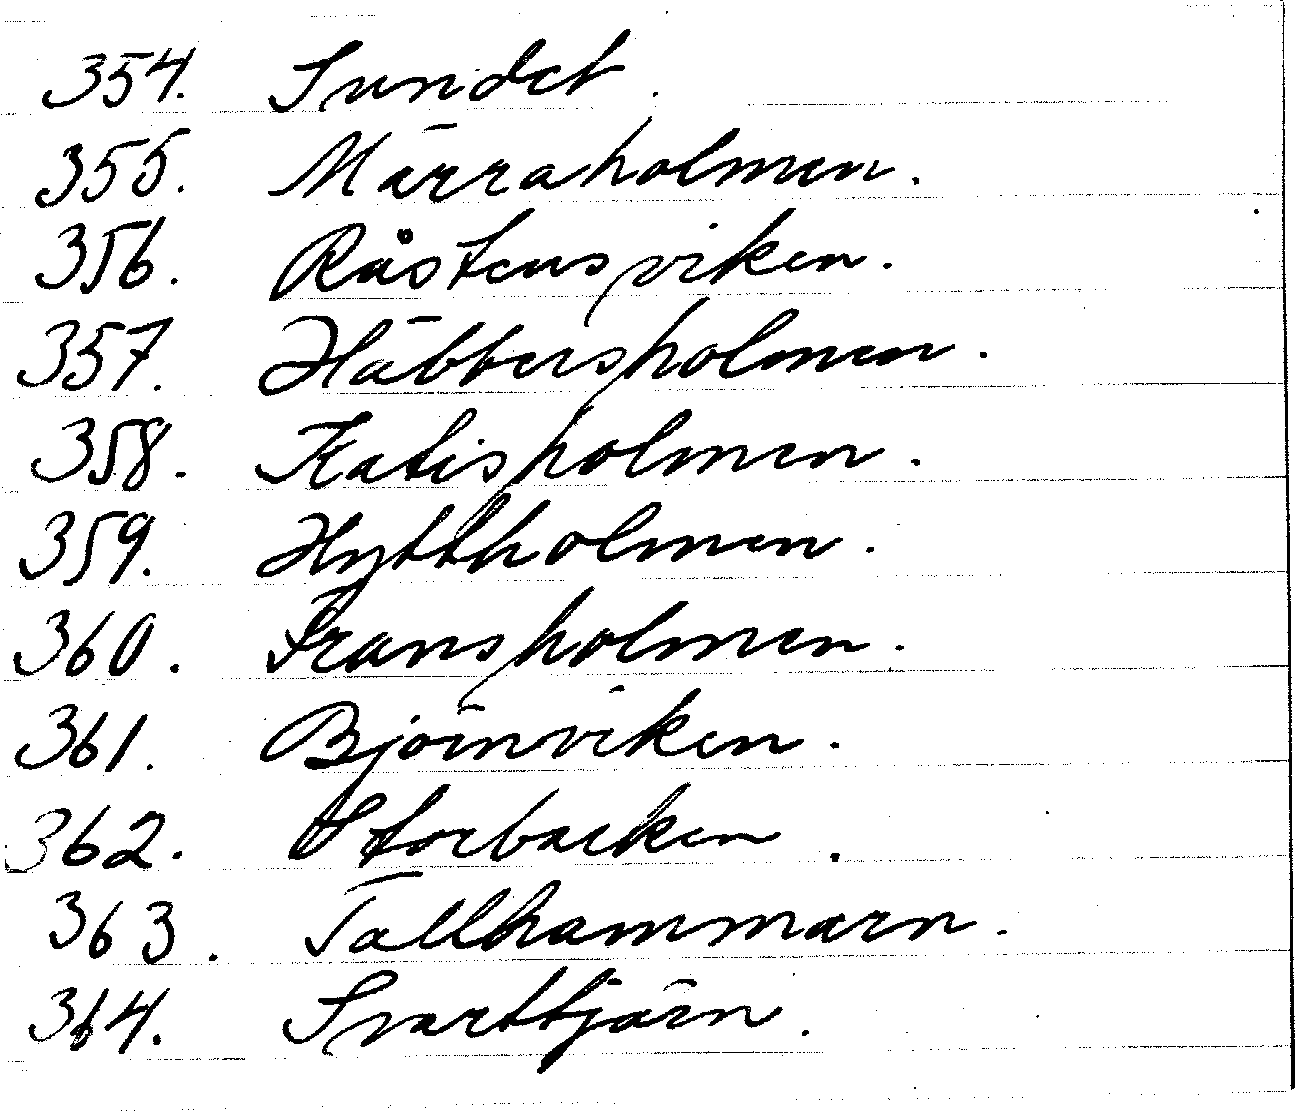 354. Sundet.
355. Märraholmen.
356. Råstensviken.
357. Häbbersholmen.
358. Katisholmen.
359. Hyttholmen.
360. Fransholmen.
361. Björnviken.
362. Storbacken.
363. Tallhammarn.
364. Svarttjärn.